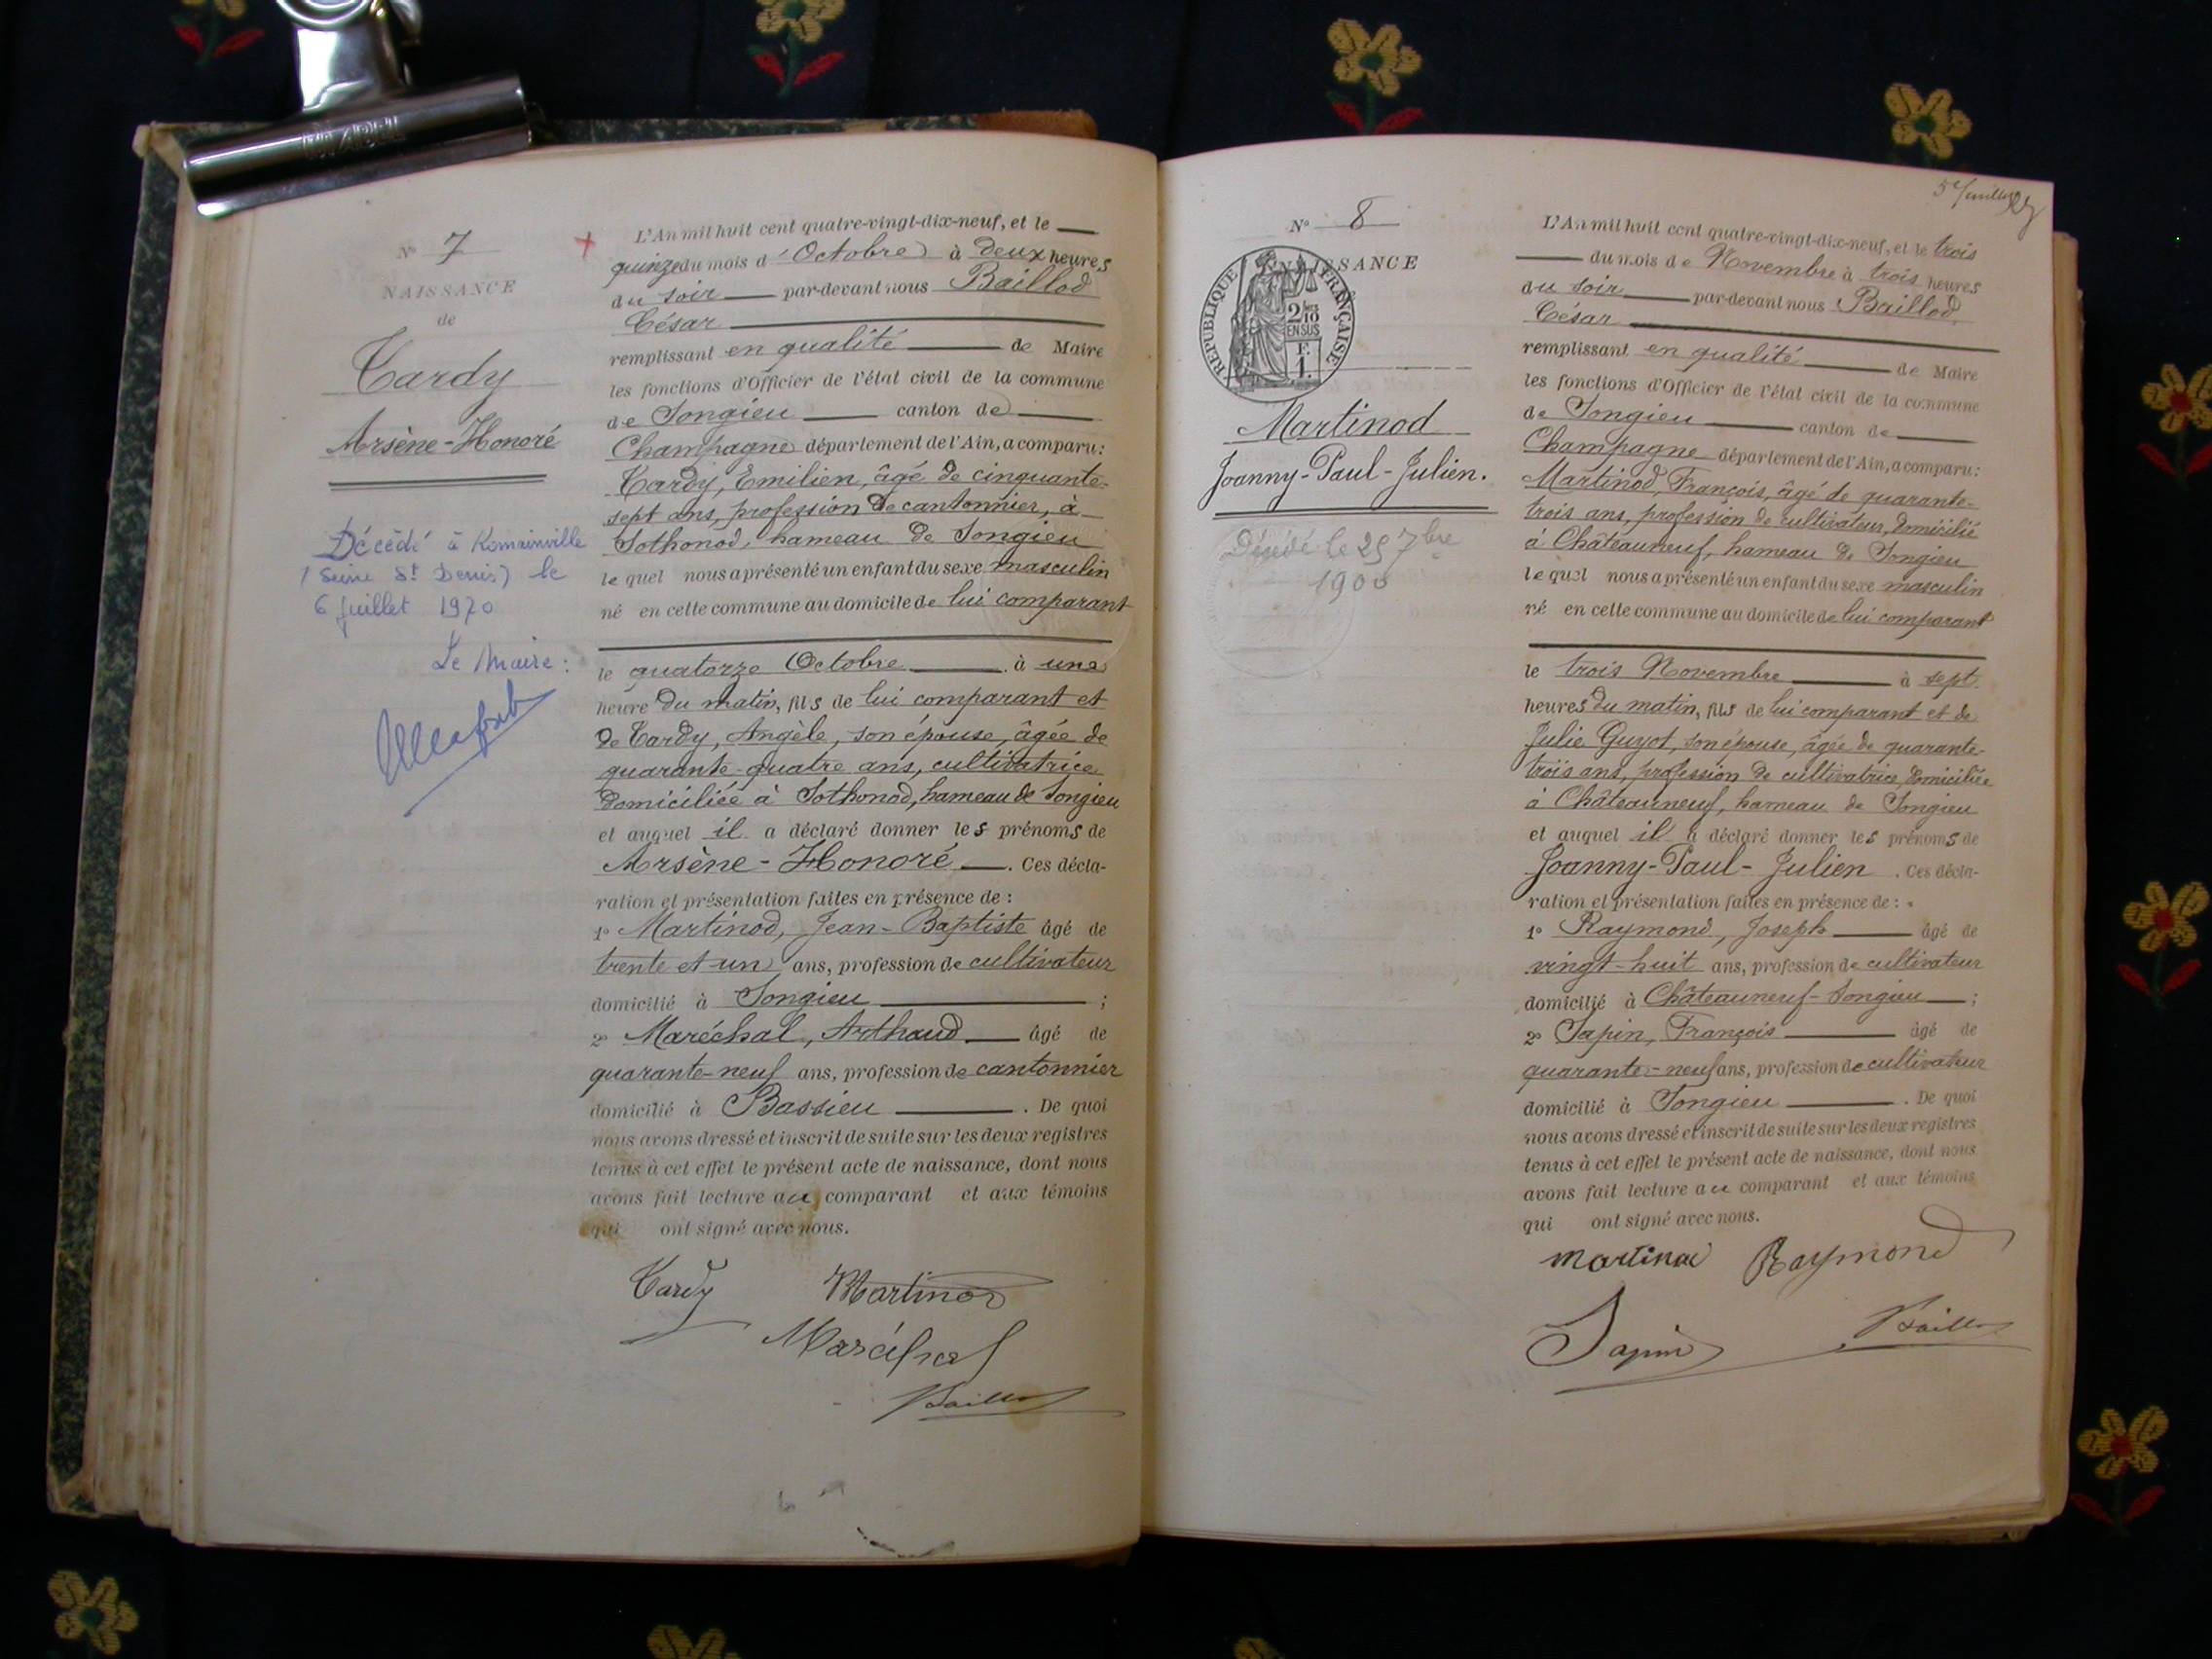 N° 7
NAISSANCE
de
Tardy
Arsène-Honoré
Décédé à Romainville
(Seine St Denis) le
6 Juillet 1970
Le Maire :
L'An mil huit cent quatre-vingt-dix-neuf, et le
quinze du mois d'Octobre à deux heures
du soir par-devant nous Baillod
César
remplissant en qualité de Maire
les fonctions d'Officier de l'état civil de la commune
de Songieu canton de
Champagne département de l'Ain, a comparu :
Tardy, Emilien, âgé de cinquante-
sept ans, profession de cantonnier, à
Sothonod, hameau de Songieu
le quel nous a présenté un enfant du sexe masculin
né en cette commune au domicile de lui comparant
le quatorze Octobre à une
heure du matin, fils de lui comparant et
de Tardy, Angèle, son épouse, âgée de
quarante-quatre ans, cultivatrice
domiciliée à Sothonod, hameau de Songieu
et auquel il a déclaré donner les prénoms de
Arsène-Honoré. Ces décla-
ration et présentation faites en présence de :
1° Martinod, Jean-Baptiste âgé de
trente et un ans, profession de cultivateur
domicilié à Songieu ;
2° Maréchal, Arthaud âgé de
quarante-neuf ans, profession de cantonnier
domicilié à Bassieu. De quoi
nous avons dressé et inscrit de suite sur les deux registres
tenus à cet effet le présent acte de naissance, dont nous
avons fait lecture au comparant et aux témoins
qui ont signé avec nous.
Tardy Martinod
Maréchal
Baillod
N° 8
NAISSANCE
RÉPUBLIQUE FRANÇAISE
2/10
EN SUS
F.
1.
Martinod
Joanny-Paul-Julien.
Décédé le 25 7bre
1900
L'An mil huit cent quatre-vingt-dix-neuf, et le trois
du mois de Novembre à trois heures
du soir par-devant nous Baillod
César
remplissant en qualité de Maire
les fonctions d'Officier de l'état civil de la commune
de Songieu canton de
Champagne département de l'Ain, a comparu :
Martinod, François, âgé de quarante-
trois ans, profession de cultivateur, domicilié
à Châteauneuf, hameau de Songieu
le quel nous a présenté un enfant du sexe masculin
né en cette commune au domicile de lui comparant
le trois Novembre à sept
heures du matin, fils de lui comparant et de
Julie Guyot, son épouse, âgée de quarante-
trois ans, profession de cultivatrice, domiciliée
à Châteauneuf, hameau de Songieu
et auquel il a déclaré donner les prénoms de
Joanny-Paul-Julien. Ces décla-
ration et présentation faites en présence de :
1° Raymond, Joseph âgé de
vingt-huit ans, profession de cultivateur
domicilié à Châteauneuf-Songieu ;
2° Sapin, François âgé de
quarante-neuf ans, profession de cultivateur
domicilié à Songieu. De quoi
nous avons dressé et inscrit de suite sur les deux registres
tenus à cet effet le présent acte de naissance, dont nous
avons fait lecture au comparant et aux témoins
qui ont signé avec nous.
Martinod Raymond
Sapin Baillod